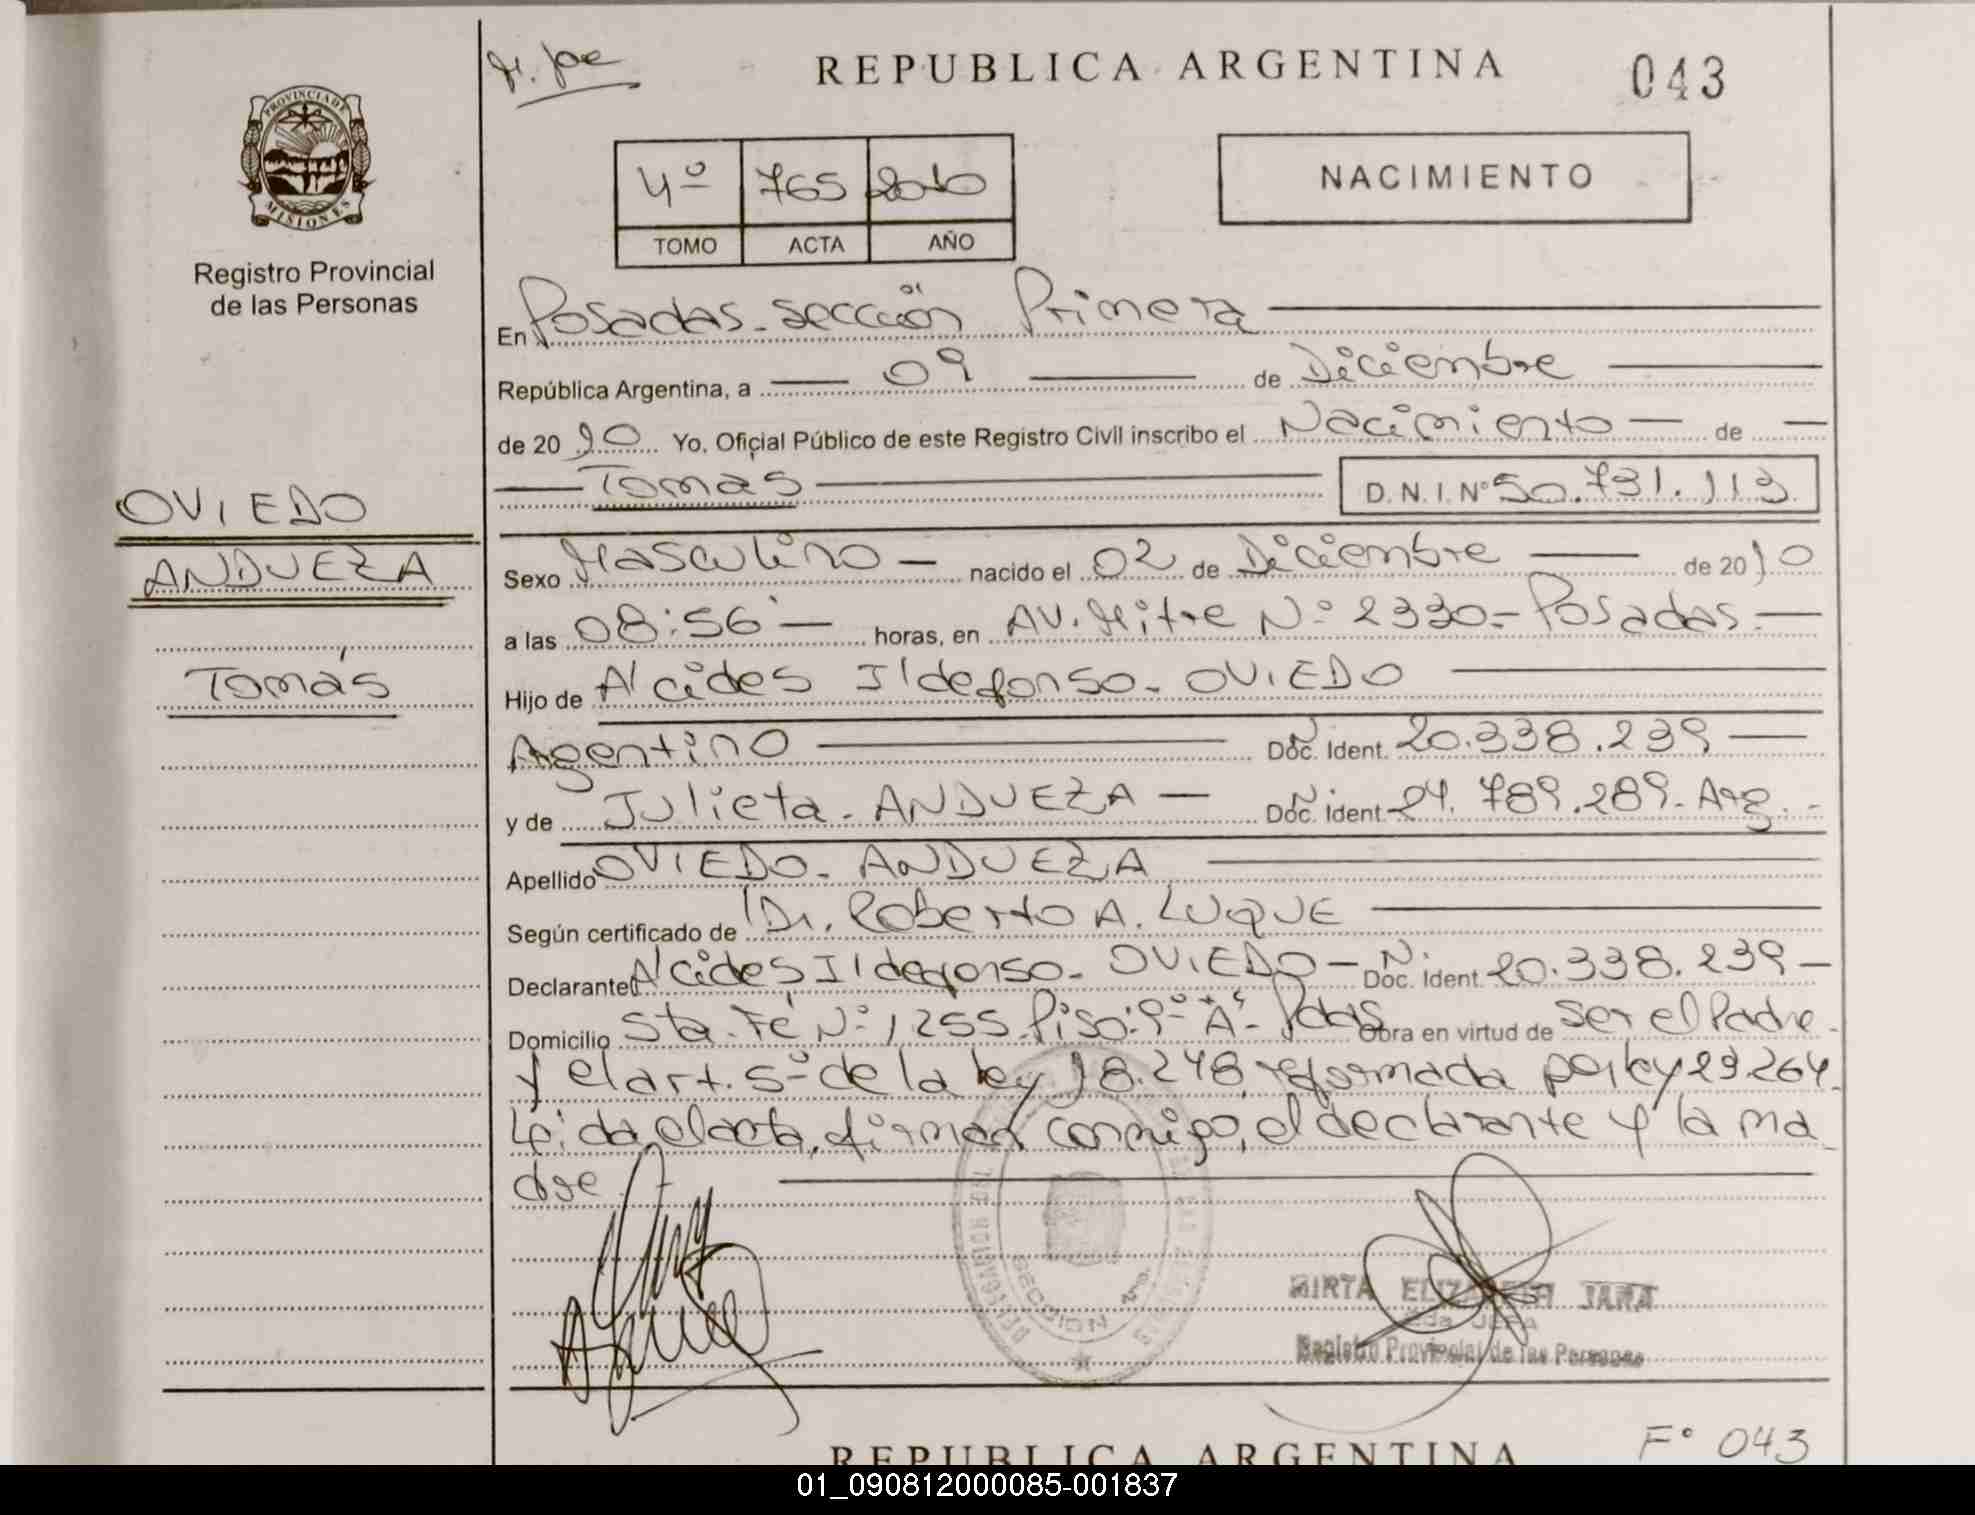 REPUBLICA ARGENTINA
043
PROVINCIA DE
MISIONES
Registro Provincial
de las Personas
4º 765 2010
TOMO ACTA AÑO
NACIMIENTO
En Posadas - sección Primera
República Argentina, a 09 de Diciembre
de 20 10 Yo, Oficial Público de este Registro Civil inscribo el Nacimiento de
Tomás D.N.I. Nº 50.731.113
OVIEDO
ANDUEZA
Tomás
Sexo Masculino nacido el 02 de Diciembre de 2010
a las 08:56 horas, en AV. Mitre Nº 2330 - Posadas.
Hijo de Alcides Ildefonso - OVIEDO
Argentino Doc. Ident. 20.338.239
y de Julieta - ANDUEZA Doc. Ident. 24.789.289 - Arg.
Apellido OVIEDO - ANDUEZA
Según certificado de Dr. Roberto A. LUQUE
Declarante Alcides Ildefonso - OVIEDO Doc. Ident. 20.338.239
Domicilio Sta. Fé Nº 1255 Piso: 9º "A" - Pdas Obra en virtud de ser el Padre
y el art. 5º de la ley 18.248 reformada por ley 23264.
Leída el acta, firman conmigo, el declarante y la ma
dre
SECCION
MIRTA ELIZABETH JARA
JEFA
Registro Provincial de las Personas
REPUBLICA ARGENTINA
Fº 043
01_090812000085-001837